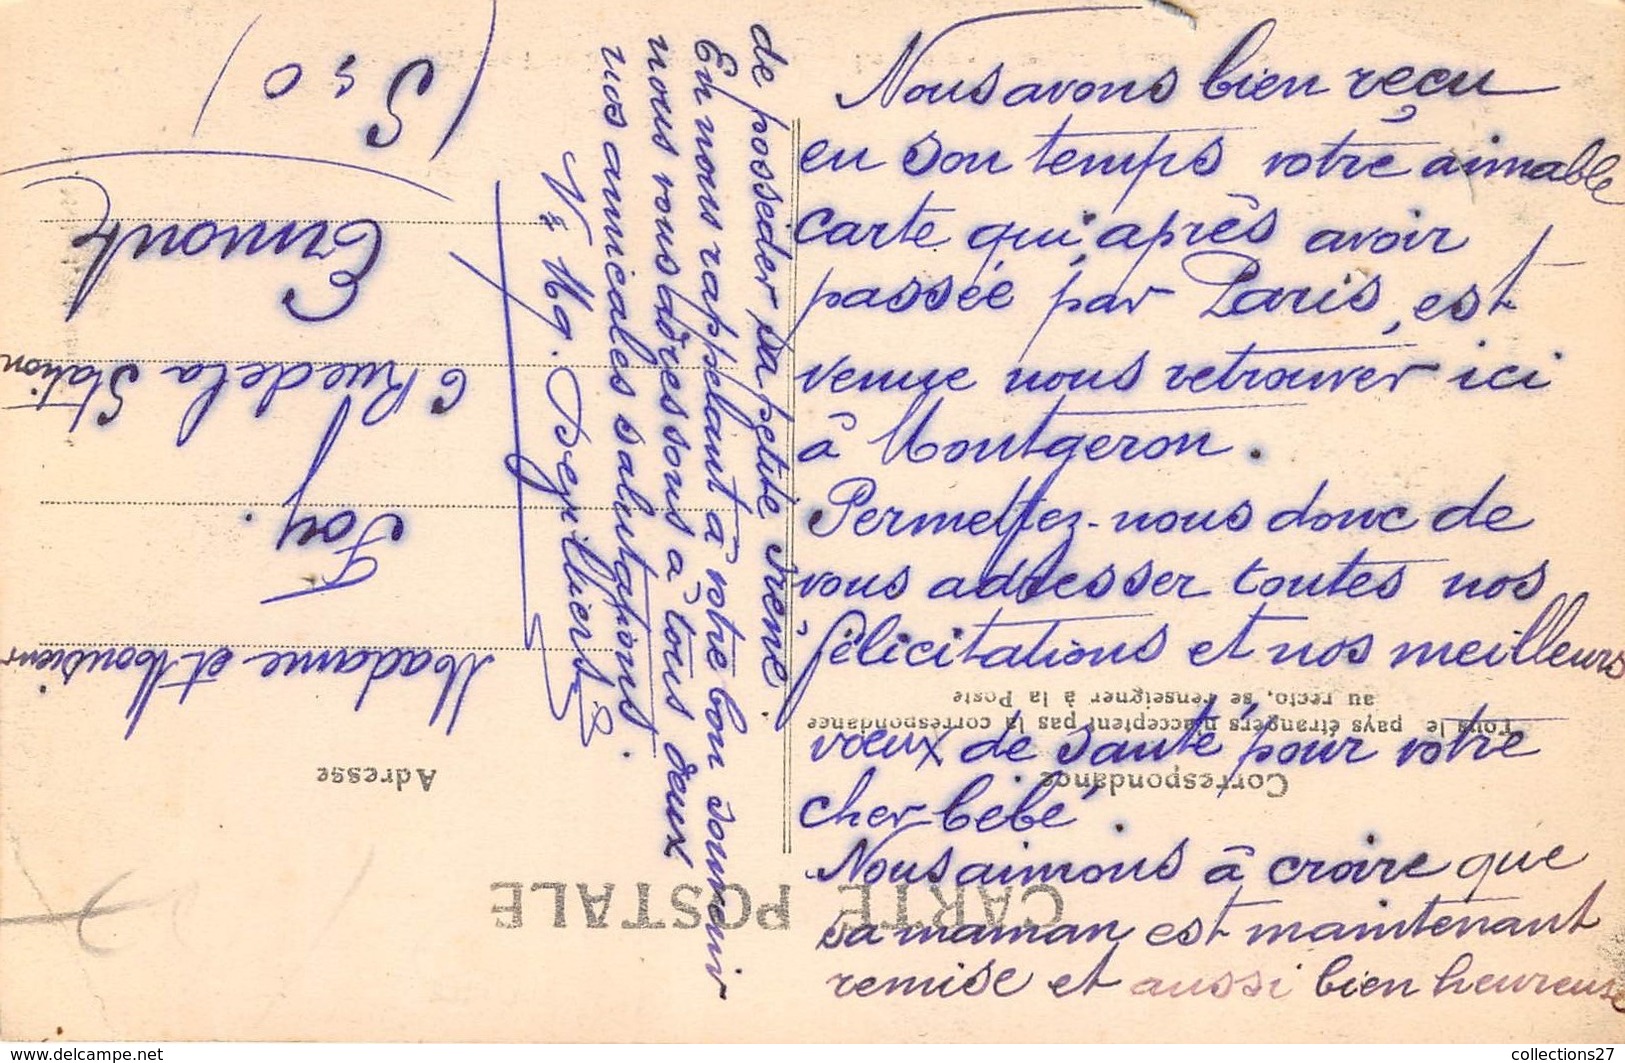 Nous avons bien reçu
en son temps votre aimable
carte qui, après avoir
passée par Paris, est
venue nous retrouver ici
à Montgeron.
Permettez-nous donc de
vous adresser toutes nos
félicitations et nos meilleurs
vœux de santé pour votre
cher bébé.
Nous aimons à croire que
sa maman est maintenant
remise et aussi bien heureuse
de posséder sa petite Irène.
En nous rappelant à votre bon souvenir
nous vous adressons à tous deux
nos amicales salutations.
CARTE POSTALE
Correspondance
Tous les pays étrangers n'acceptent pas la correspondance
au recto, se renseigner à la Poste
Adresse
Madame et Monsieur
Foy.
6 Rue de la Station
Ermont
(S & O)
www.delcampe.net
collections27